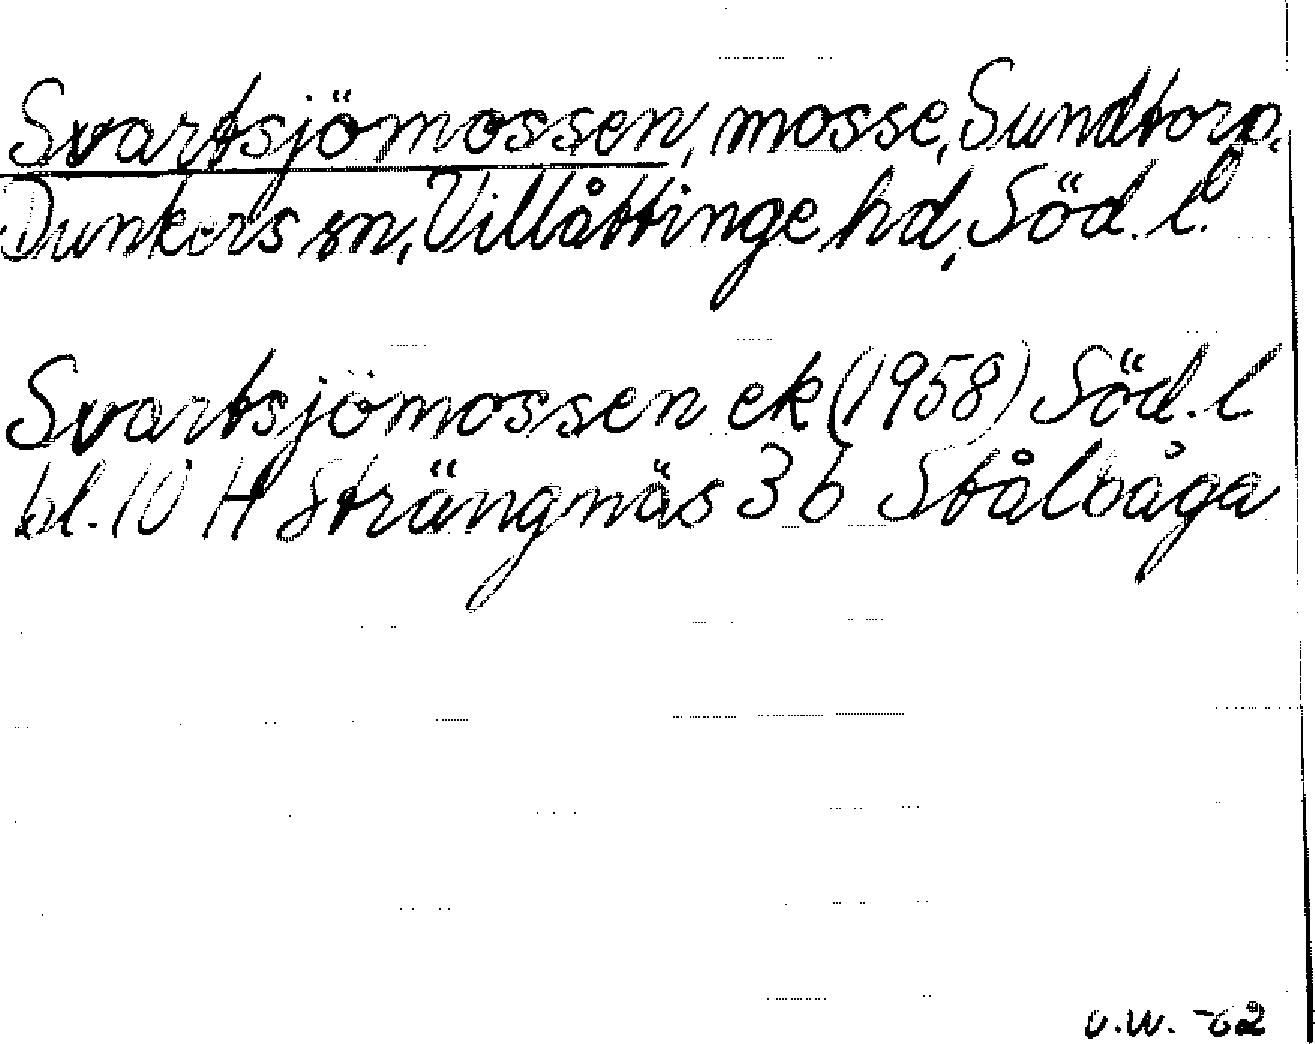 Svartsjömossen, mosse, Sundtorp,
Dunkers sn, Villåttinge hd, Söd. l.
Svartsjömossen ek (1958) Söd. l
bl. 10 H Strängnäs 3 b Stålbåga
U.W. -62